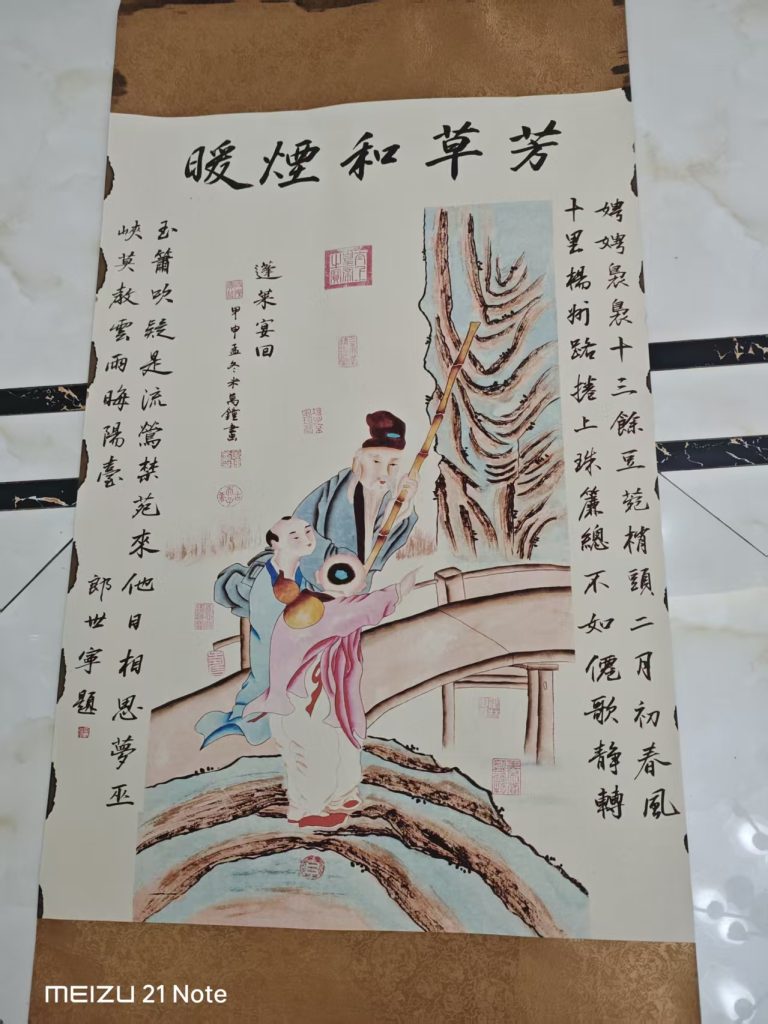 芳草和煙暖
娉娉裊裊十三餘豆蔻梢頭二月初春風
十里楊州路捲上珠簾總不如僊歌靜轉
蓬萊宴回
甲申孟冬米萬鐘畫
玉簫吹疑是流鶯禁苑來他日相思夢巫
峽莫教雲雨晦陽臺
郎世寧題
MEIZU 21 Note